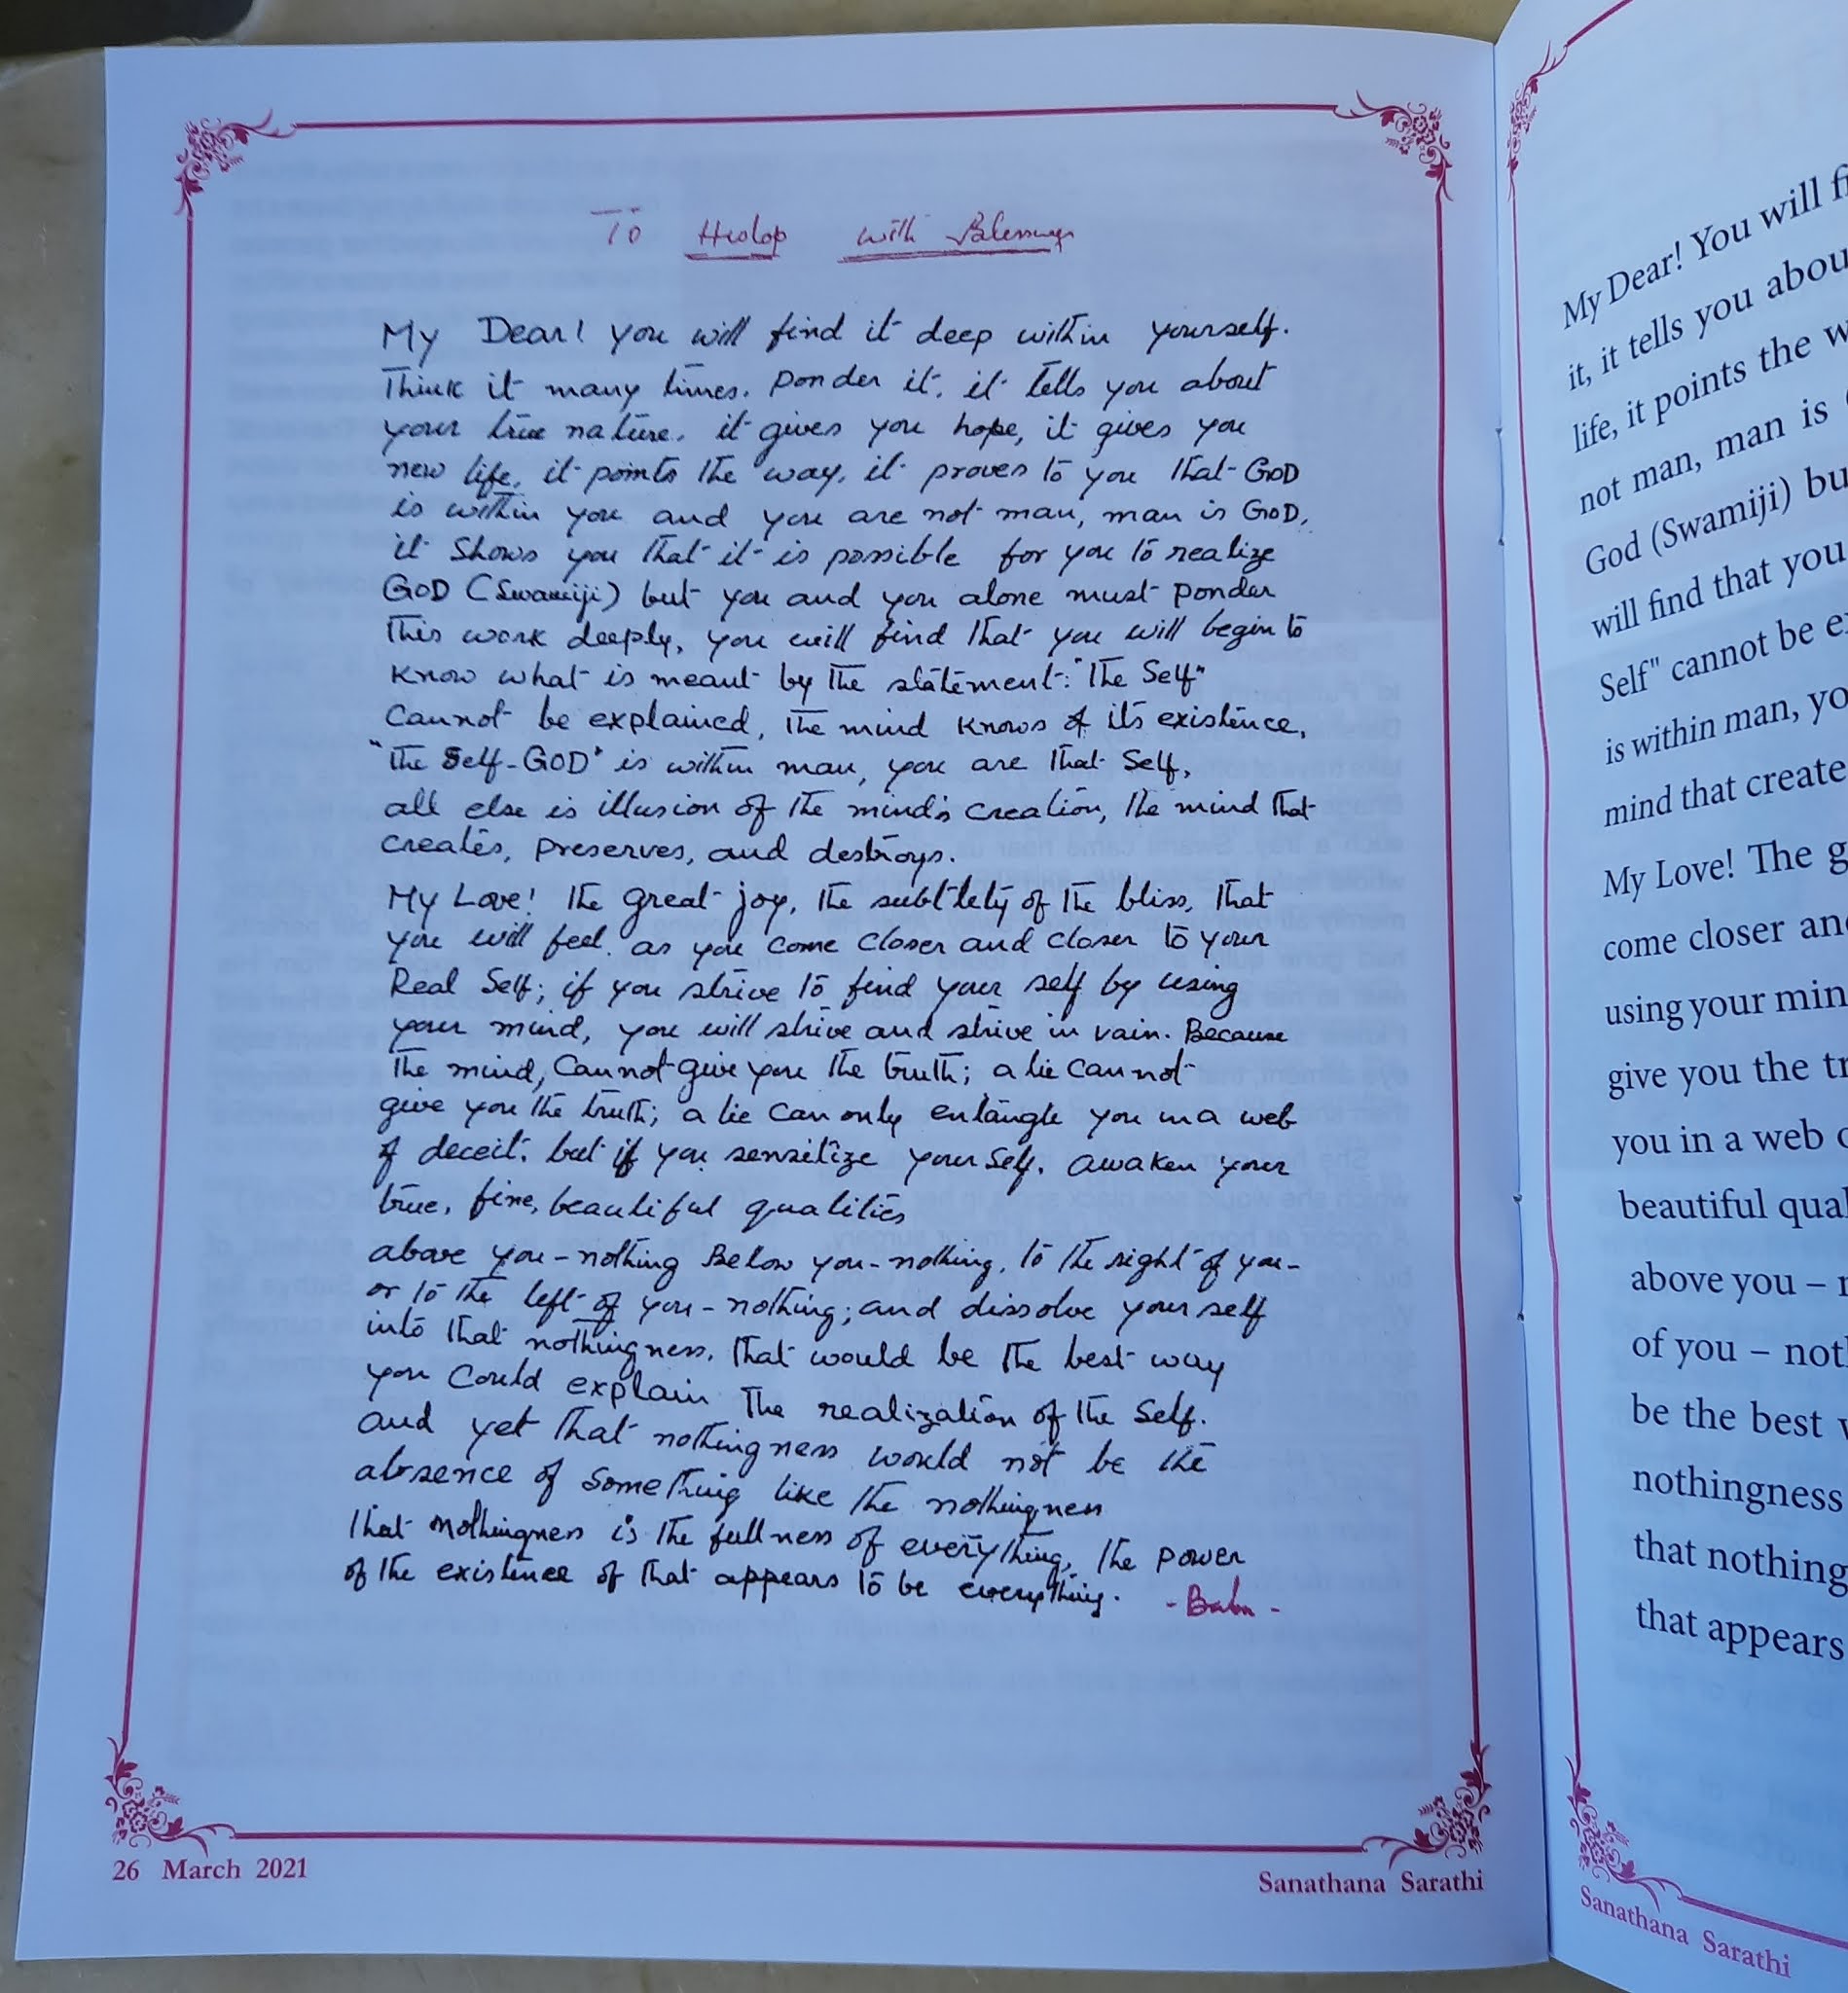 To Hislop with Blessings
My Dear! you will find it deep within yourself.
Think it many times. Ponder it, it tells you about
your true nature. it gives you hope, it gives you
new life, it points the way, it proves to you that GOD
is within you and you are not man, man is GOD,
it shows you that it is possible for you to realize
GOD (Swamiji) but you and you alone must ponder
this work deeply, you will find that you will begin to
know what is meant by the statement: "The Self"
cannot be explained, the mind knows of its existence,
"The Self-GOD" is within man, you are that Self,
all else is illusion of the mind's creation, the mind that
creates, preserves, and destroys.
My Love! The great joy, the subtlety of the bliss, that
you will feel as you come closer and closer to your
Real Self; if you strive to find your self by using
your mind, you will strive and strive in vain. Because
the mind, cannot give you the truth; a lie cannot
give you the truth; a lie can only entangle you in a web
of deceit. but if you sensitize your self. awaken your
true, fine, beautiful qualities
above you-nothing Below you-nothing, to the right of you-
or to the left of you-nothing; and dissolve your self
into that nothingness, that would be the best way
you could explain the realization of the Self.
and yet that nothingness would not be the
absence of something like the nothingness
that nothingness is the fullness of everything, the power
of the existence of that appears to be everything. -Baba-
26 March 2021
Sanathana Sarathi
My Dear! You will
it, it tells you
life, it points the
not man, man is
God (Swamiji)
will find that you
Self" cannot be
is within man,
mind that
My Love! The
come closer
using your
give you the
you in a web
beautiful
above you –
of you –
be the best
nothingness
that
that appears
Sanathana Sarathi